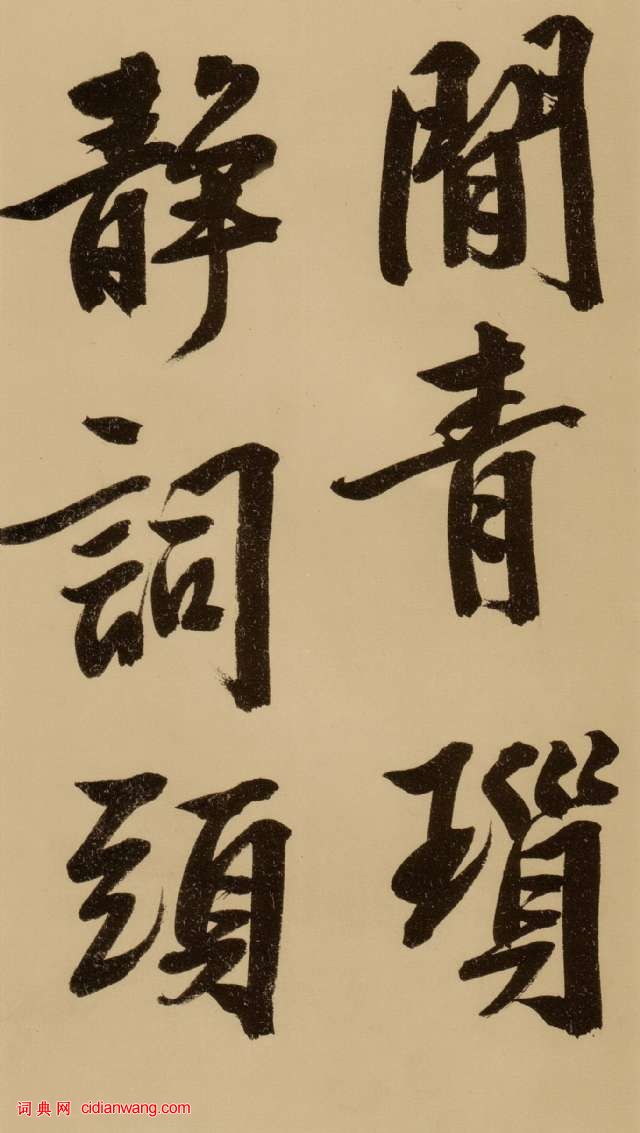 閒青瑣
靜詞頭
词典网 cidianwang.com